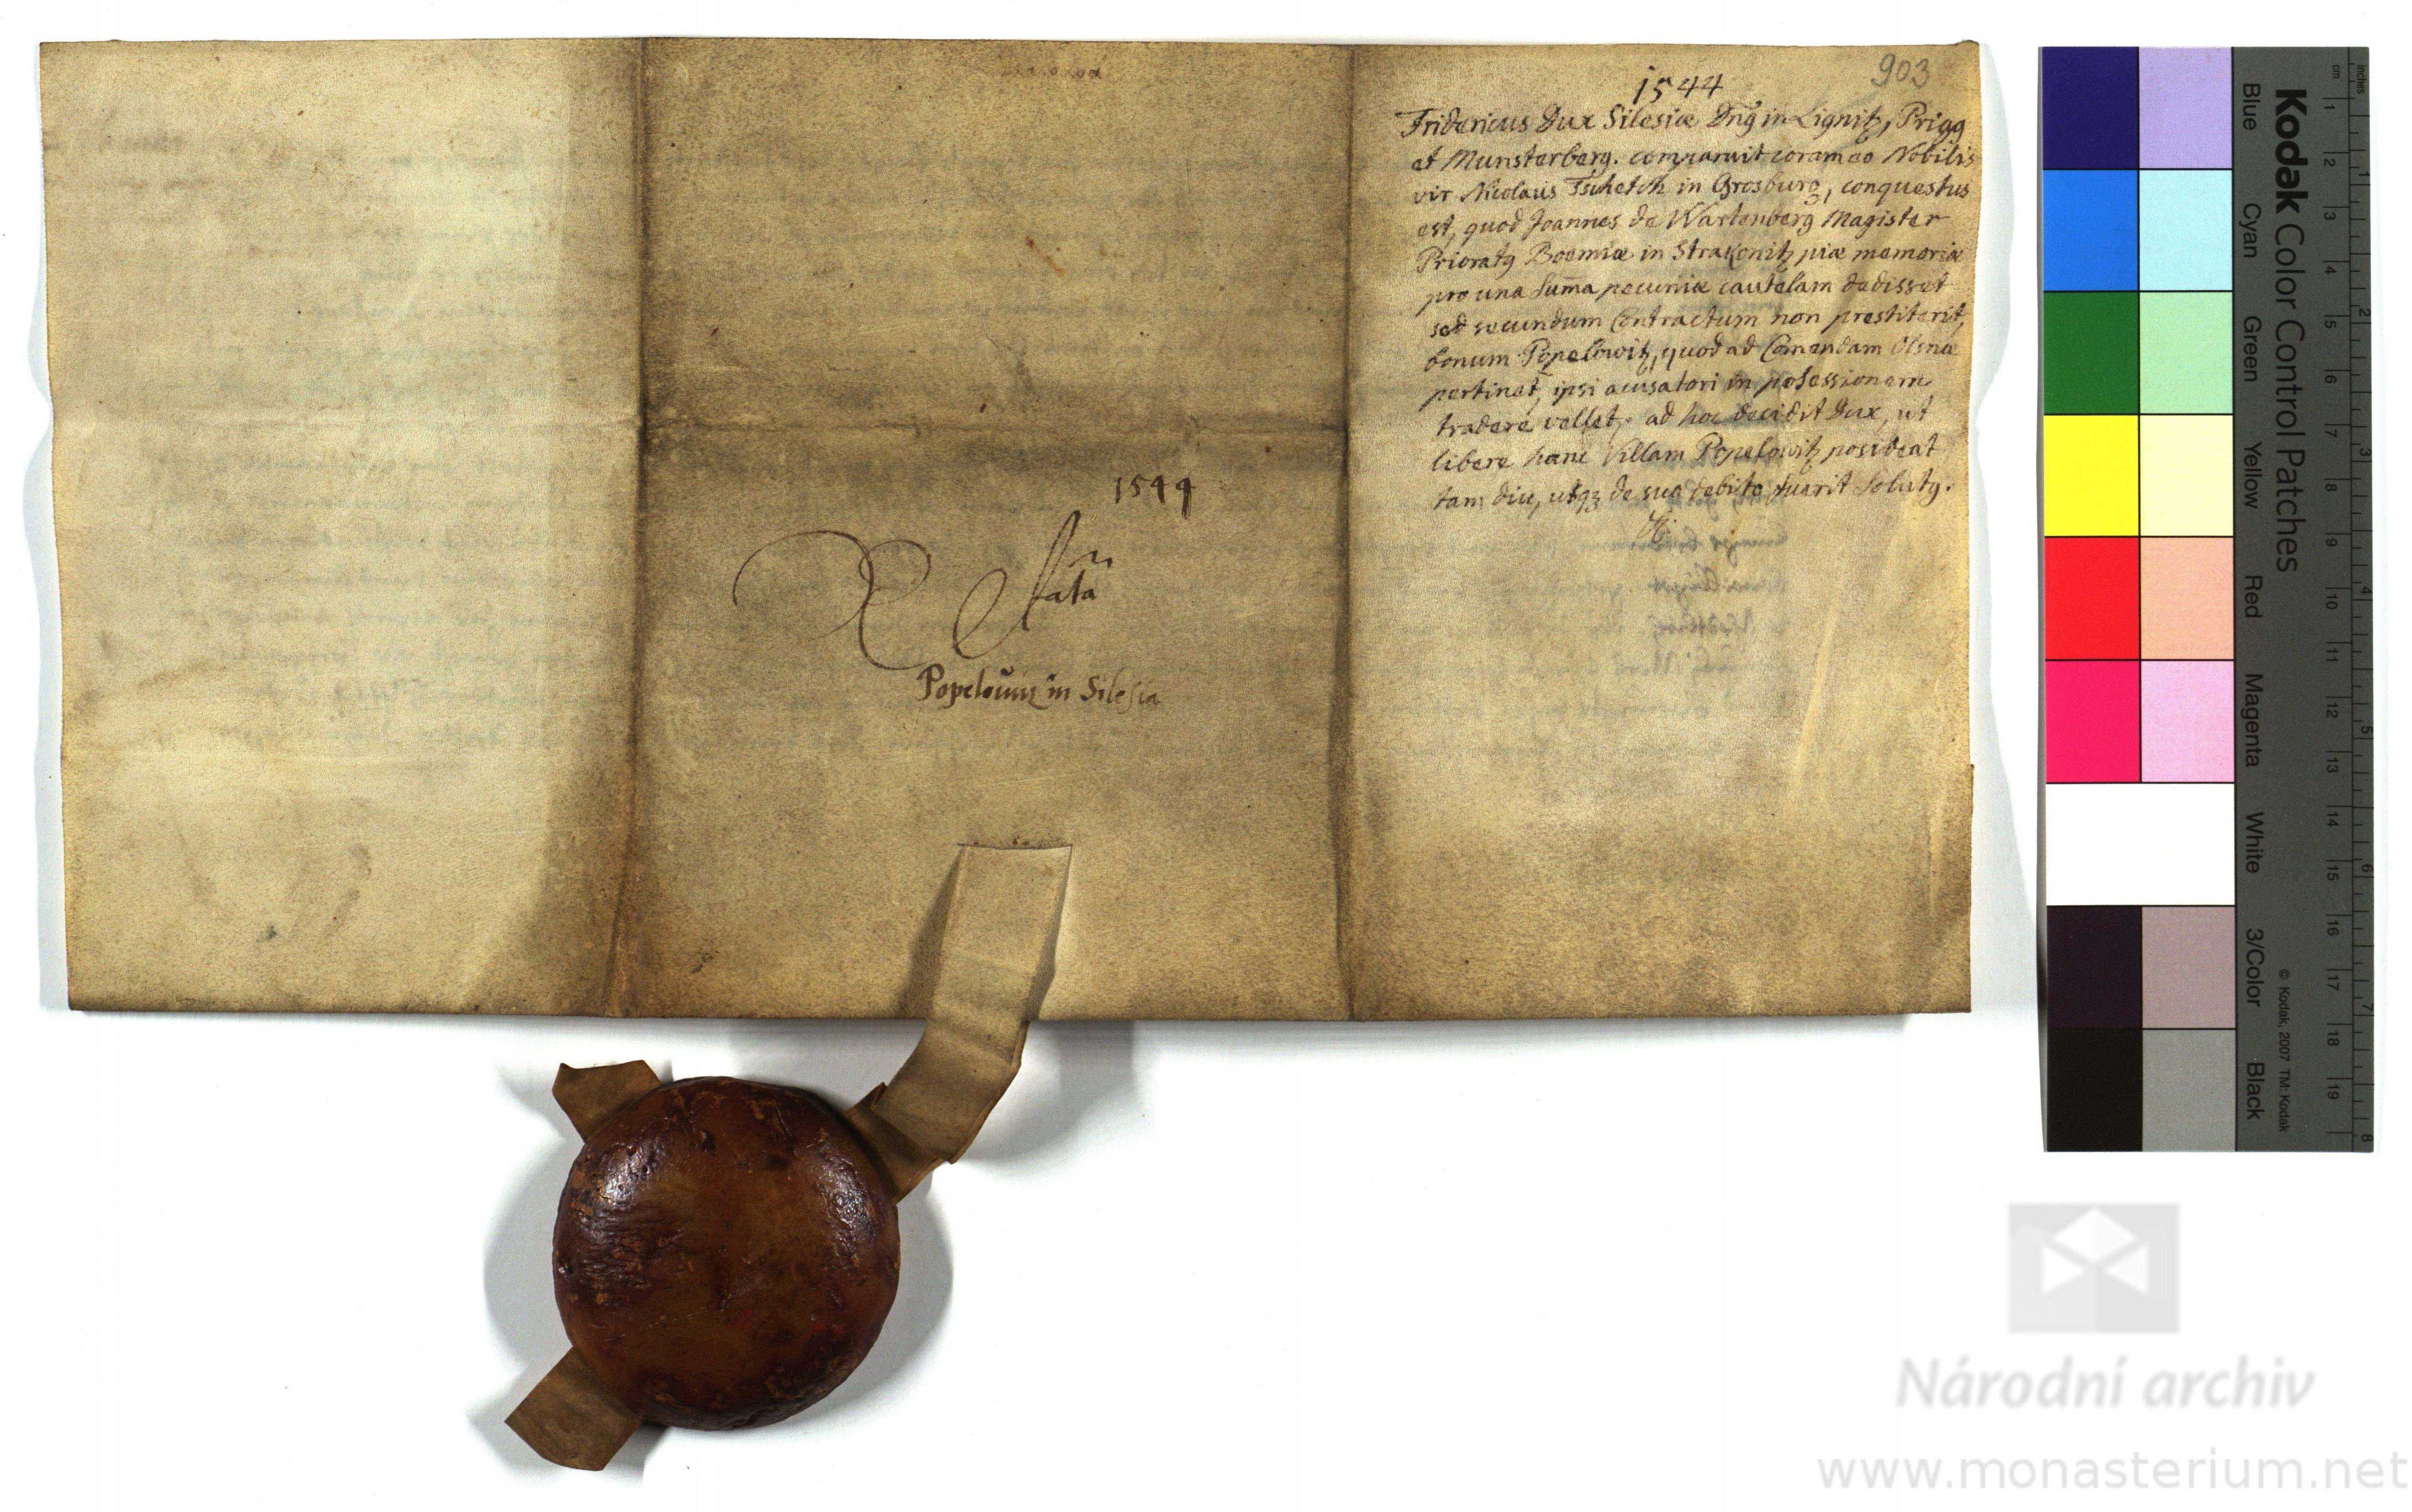 903
1544
Fridericus Dux Silesiæ Dng in Lignitz, Prigg
et Munsterberg. comparuit coram eo Nobilis
vir Nicolaus Tschetch in Grosburg, conquestus
est, quod Joannes de Wartenberg Magister
Prioratg Boemiæ in Strakonitz piæ memoriæ
pro una Suma pecuniæ cautelam dedisset
sed secundum Contractum non prestiterit,
bonum Popelowitz, quod ad Comendam Olsnæ
pertinet, ipsi acusatori in posessionem
tradere vellet, ad hoc decidit Dux, ut
libere hanc Villam Popelowitz posideat
tam diu, usqz de suo debito fuerit Solutg.
1544
Popelowitz in Silesia
Kodak Color Control Patches
Blue Cyan Green Yellow Red Magenta White 3/Color Black
© Kodak, 2007 TM: Kodak
cm 1 2 3 4 5 6 7 8 9 10 11 12 13 14 15 16 17 18 19
inches 1 2 3 4 5 6 7 8
Národní archiv
www.monasterium.net